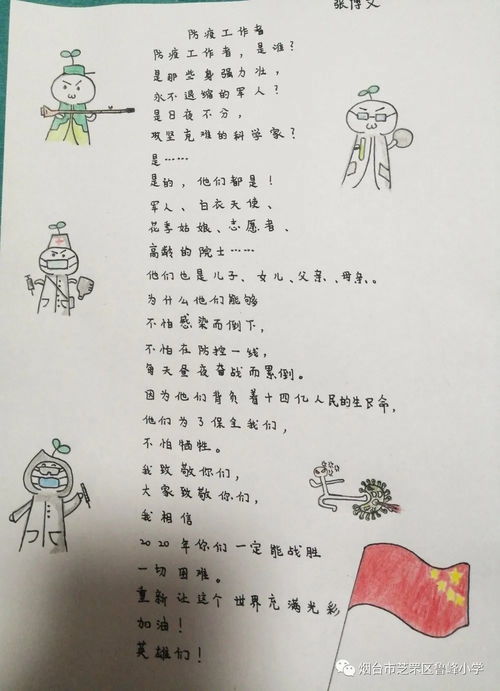 张博文
防疫工作者
防疫工作者，是谁？
是那些身强力壮，
永不退缩的军人？
是日夜不分，
攻坚克难的科学家？
是……
是的，他们都是！
军人、白衣天使、
花季姑娘、志愿者、
高龄的院士……
他们也是儿子、女儿、父亲、母亲。
为什么他们能够
不怕感染而倒下，
不怕在防控一线，
每天昼夜奋战而累倒。
因为他们背负着十四亿人民的生命，
他们为了保全我们，
不怕牺牲。
我致敬你们，
大家致敬你们，
我相信
2020年你们一定能战胜
一切困难。
重新让这个世界充满光彩
加油！
英雄们！
烟台市芝罘区鲁峰小学